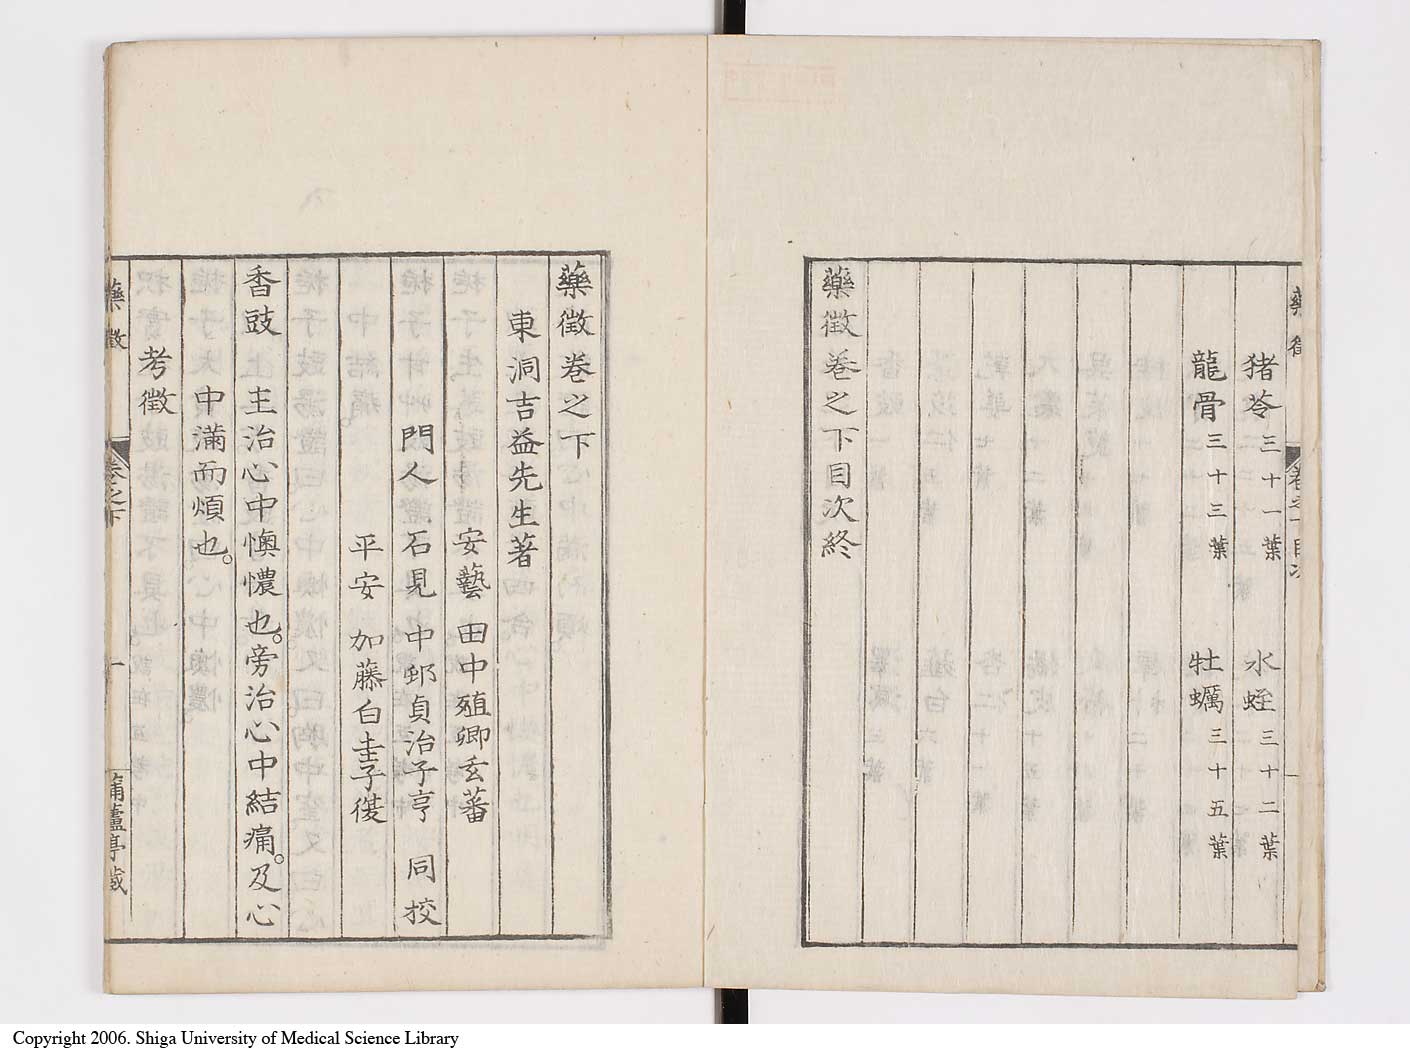 猪苓 三十一葉 水蛭 三十二葉
龍骨 三十三葉 牡蠣 三十五葉
藥徵卷之下目次終
藥徵卷之下
東洞吉益先生著
安藝 田中殖卿玄蕃
門人 石見 中邨貞治子亨 同校
平安 加藤白圭子復
香豉 主治心中懊憹也。旁治心中結痛。及心
中滿而煩也。
考徵
藥徵 卷之下 一
Copyright 2006. Shiga University of Medical Science Library